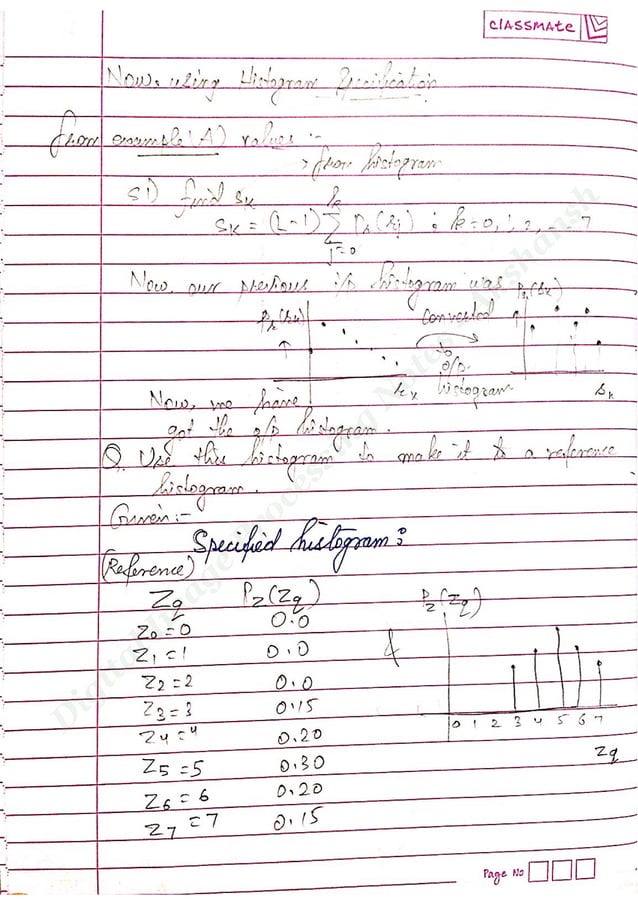 classmate
Now, using Histogram Specification
from example (A) values :-
> from histogram
S1) find sk
sk = (L-1) Σ pr(rj) ; k=0,1,2,...7
k
j=0
Now, our previous i/p histogram was
pr(rk)
converted
to
o/p.
histogram
rk
Ps(sk)
sk
Now, we have
got the o/p histogram.
Q. Use this histogram to make it to a reference
histogram.
Given:-
Specified histogram:
(Reference)
Zq Pz(Zq)
Z0=0 0.0
Z1=1 0.0
Z2=2 0.0
Z3=3 0.15
Z4=4 0.20
Z5=5 0.30
Z6=6 0.20
Z7=7 0.15
&
Pz(Zq)
0 1 2 3 4 5 6 7
Zq
Digital Image Processing Notes Akshansh
Page No